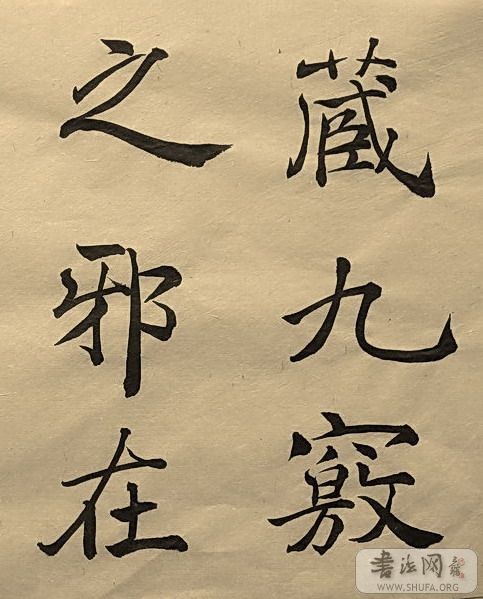 藏九竅
之邪在
書法网
WWW.SHUFA.ORG